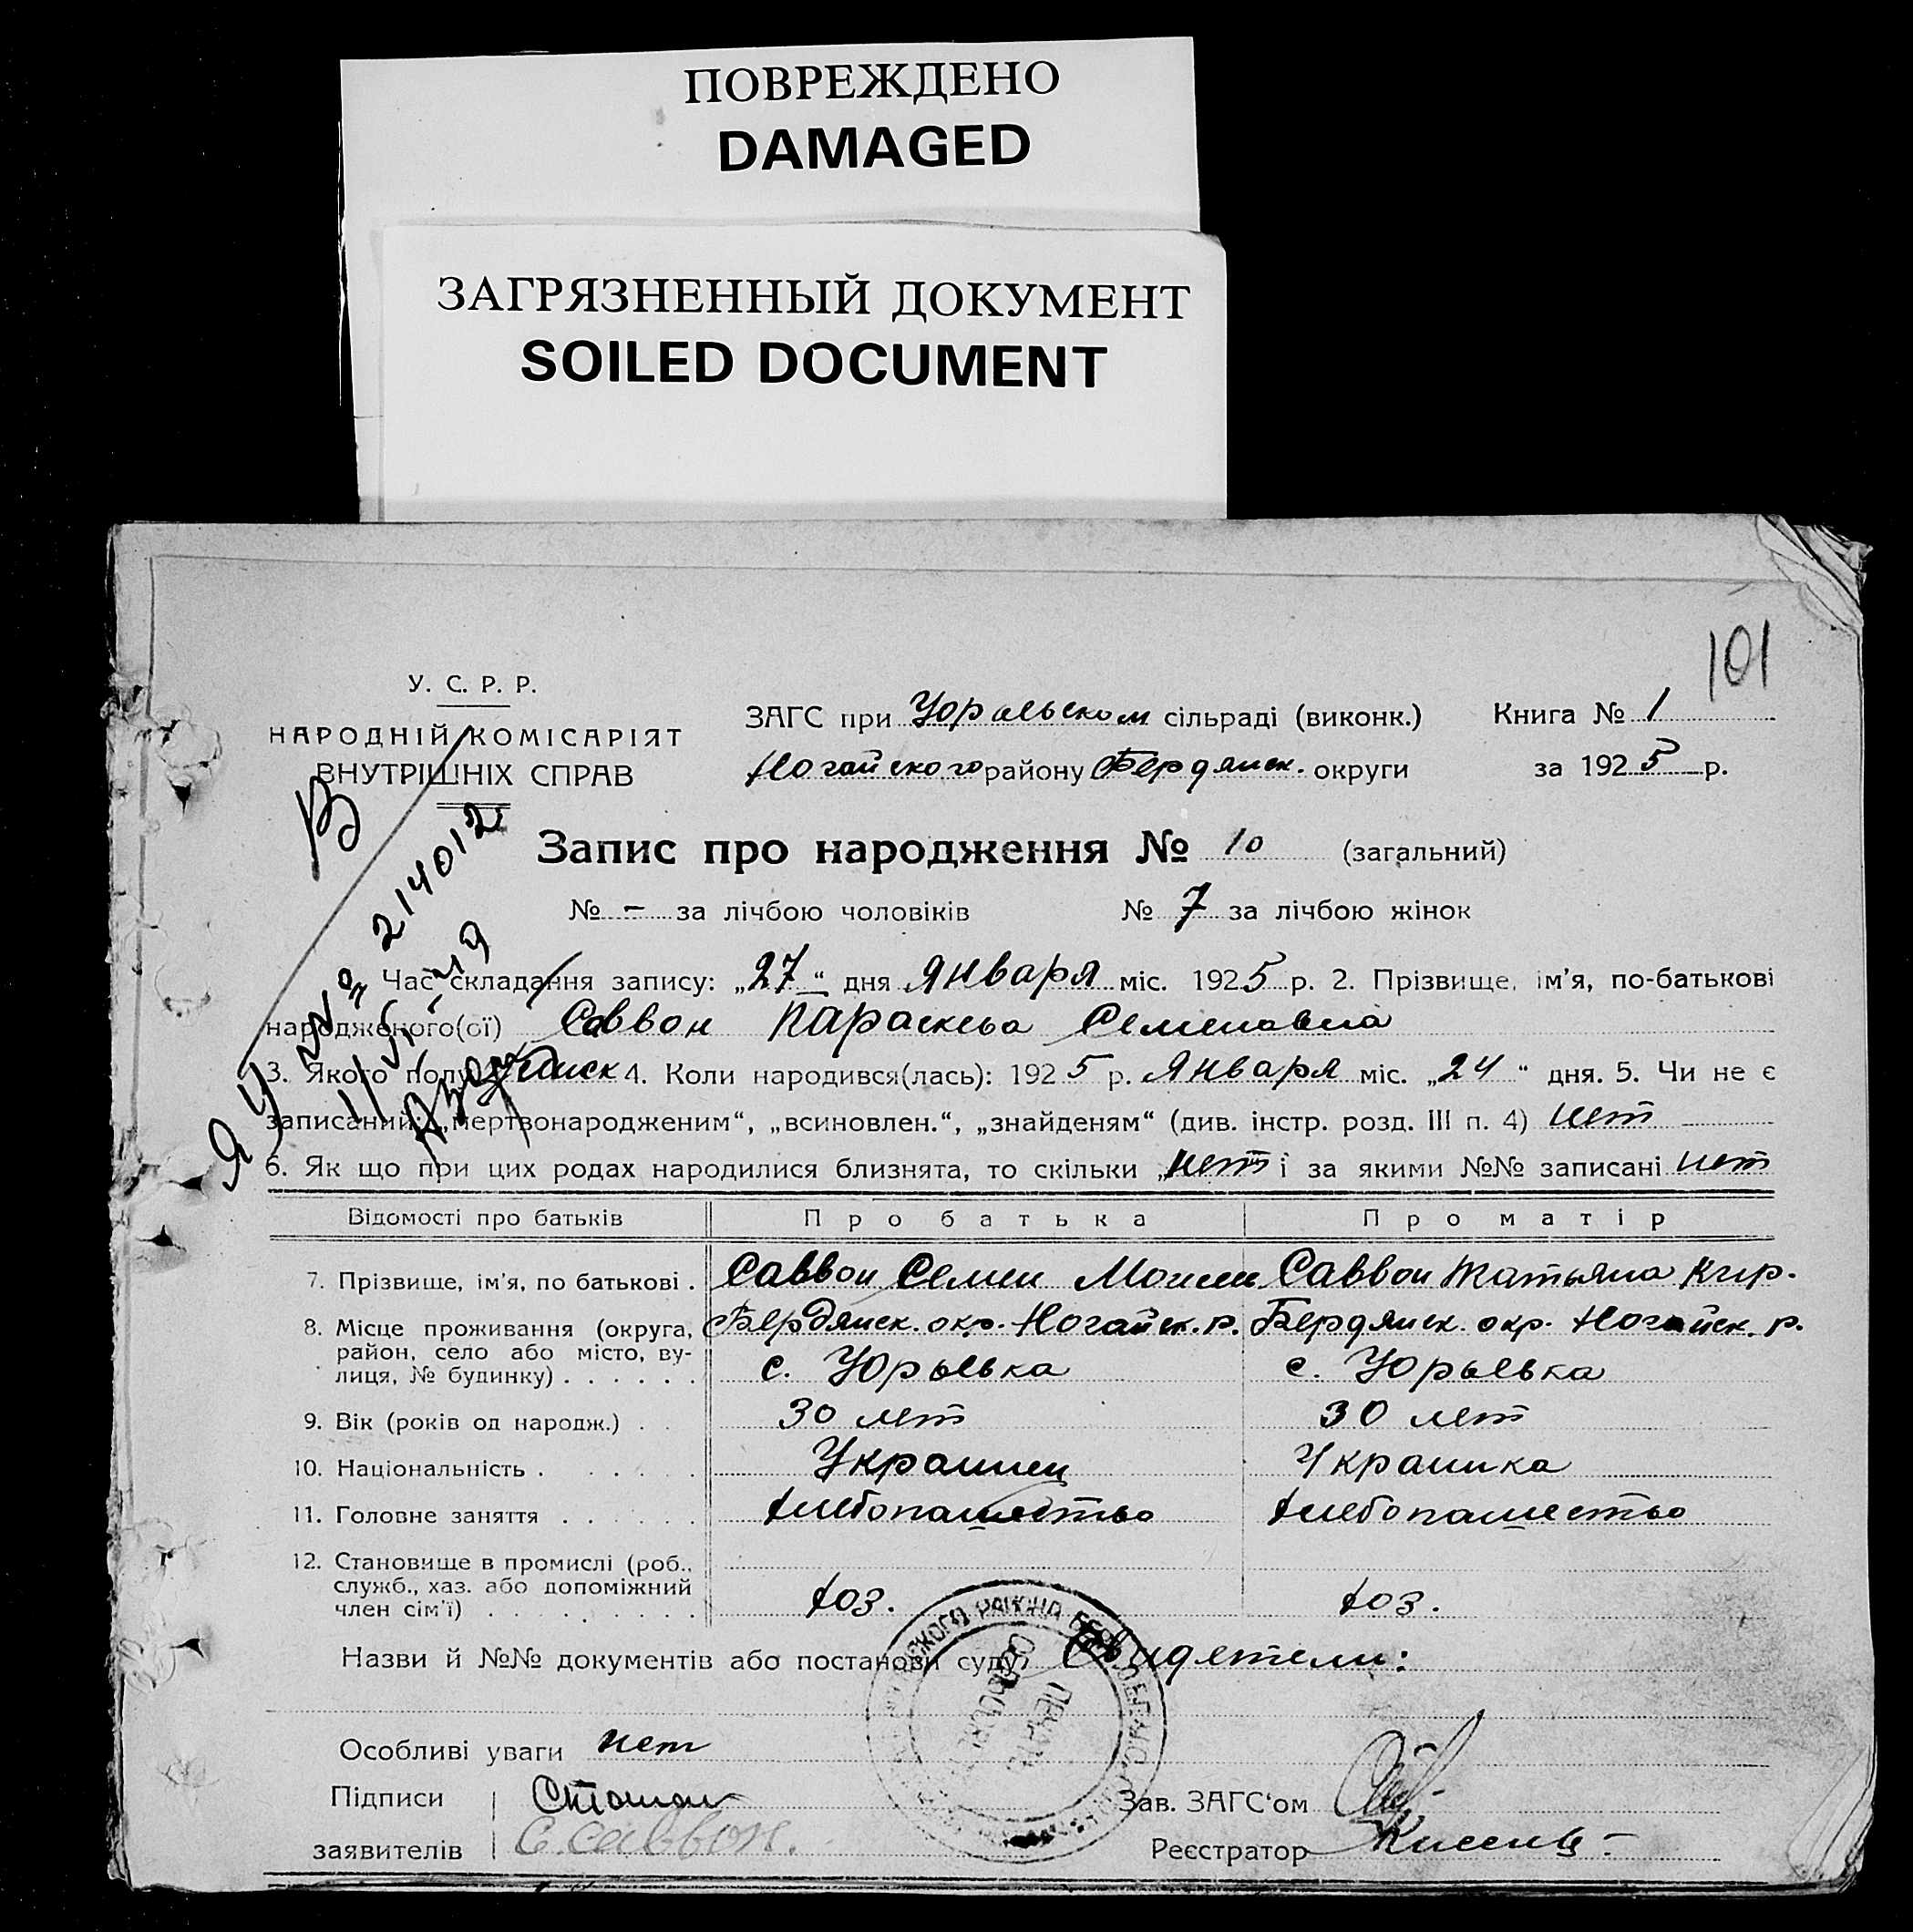 ПОВРЕЖДЕНО
DAMAGED
ЗАГРЯЗНЕННЫЙ ДОКУМЕНТ
SOILED DOCUMENT
101
У. С. Р. Р.
НАРОДНІЙ КОМІСАРІЯТ
ВНУТРІШНІХ СПРАВ
ЗАГС при Юрьевском сільраді (виконк.) Книга № 1
Ногайского району Бердянск. округи за 1925 р.
Запис про народження № 10 (загальний)
№ - за лічбою чоловіків № 7 за лічбою жінок
Час складання запису: „27“ дня Января міс. 1925 р. 2. Прізвище, ім'я, по-батькові
народженого(ої) Саввон Параскева Семеновна
3. Якого полу женск 4. Коли народився(лась): 1925 р. Января міс. „24“ дня. 5. Чи не є
записаний: „мертвонародженим“, „всиновлен.“, „знайденям“ (див. інстр. розд. III п. 4) нет
6. Як що при цих родах народилися близнята, то скільки „нет і за якими №№ записані нет
Відомості про батьків Про батька Про матір
7. Прізвище, ім'я, по батькові . Саввон Семен Моисеи Саввон Татьяна Кир.
8. Місце проживання (округа, Бердянск. окр. Ногайск. р. Бердянск. окр. Ногайск. р.
район, село або місто, ву-
лиця, № будинку) . . . . . . с. Юрьевка с. Юрьевка
9. Вік (років од народж.) . . 30 лет 30 лет
10. Національність . . . . . Украинец Украинка
11. Головне заняття . . . . . . Хлебопашество Хлебопашество
12. Становище в промислі (роб.,
служб., хаз. або допоміжний
член сім'ї) . . . . . . . . . хоз. хоз.
Назви й №№ документів або постанови суду: Свидетели:
Особливі уваги нет
Підписи
Зав. ЗАГС'ом
заявителів С. Саввон.
Реєстратор
В
ЯУ № 214012